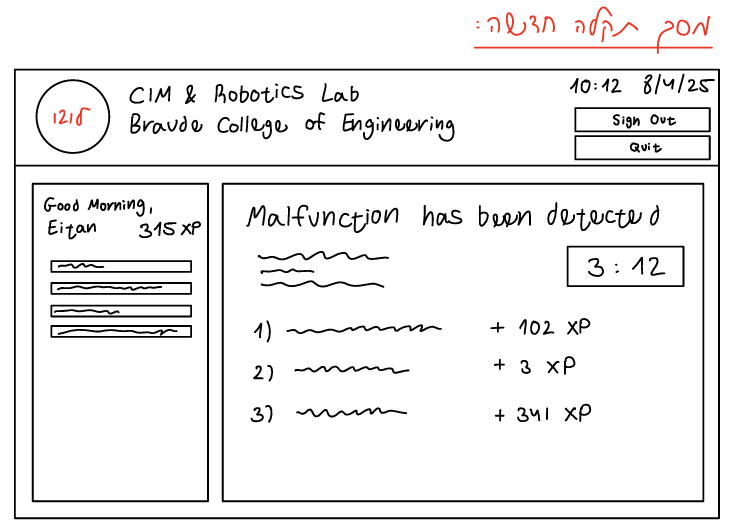 מסך תקלה חדשה:
לוגו
CIM & Robotics Lab
Braude College of Engineering
10:12 8/4/25
Sign Out
Quit
Good Morning,
Eitan 315 XP
Malfunction has been detected
3 : 12
1) + 102 XP
2) + 3 XP
3) + 341 XP